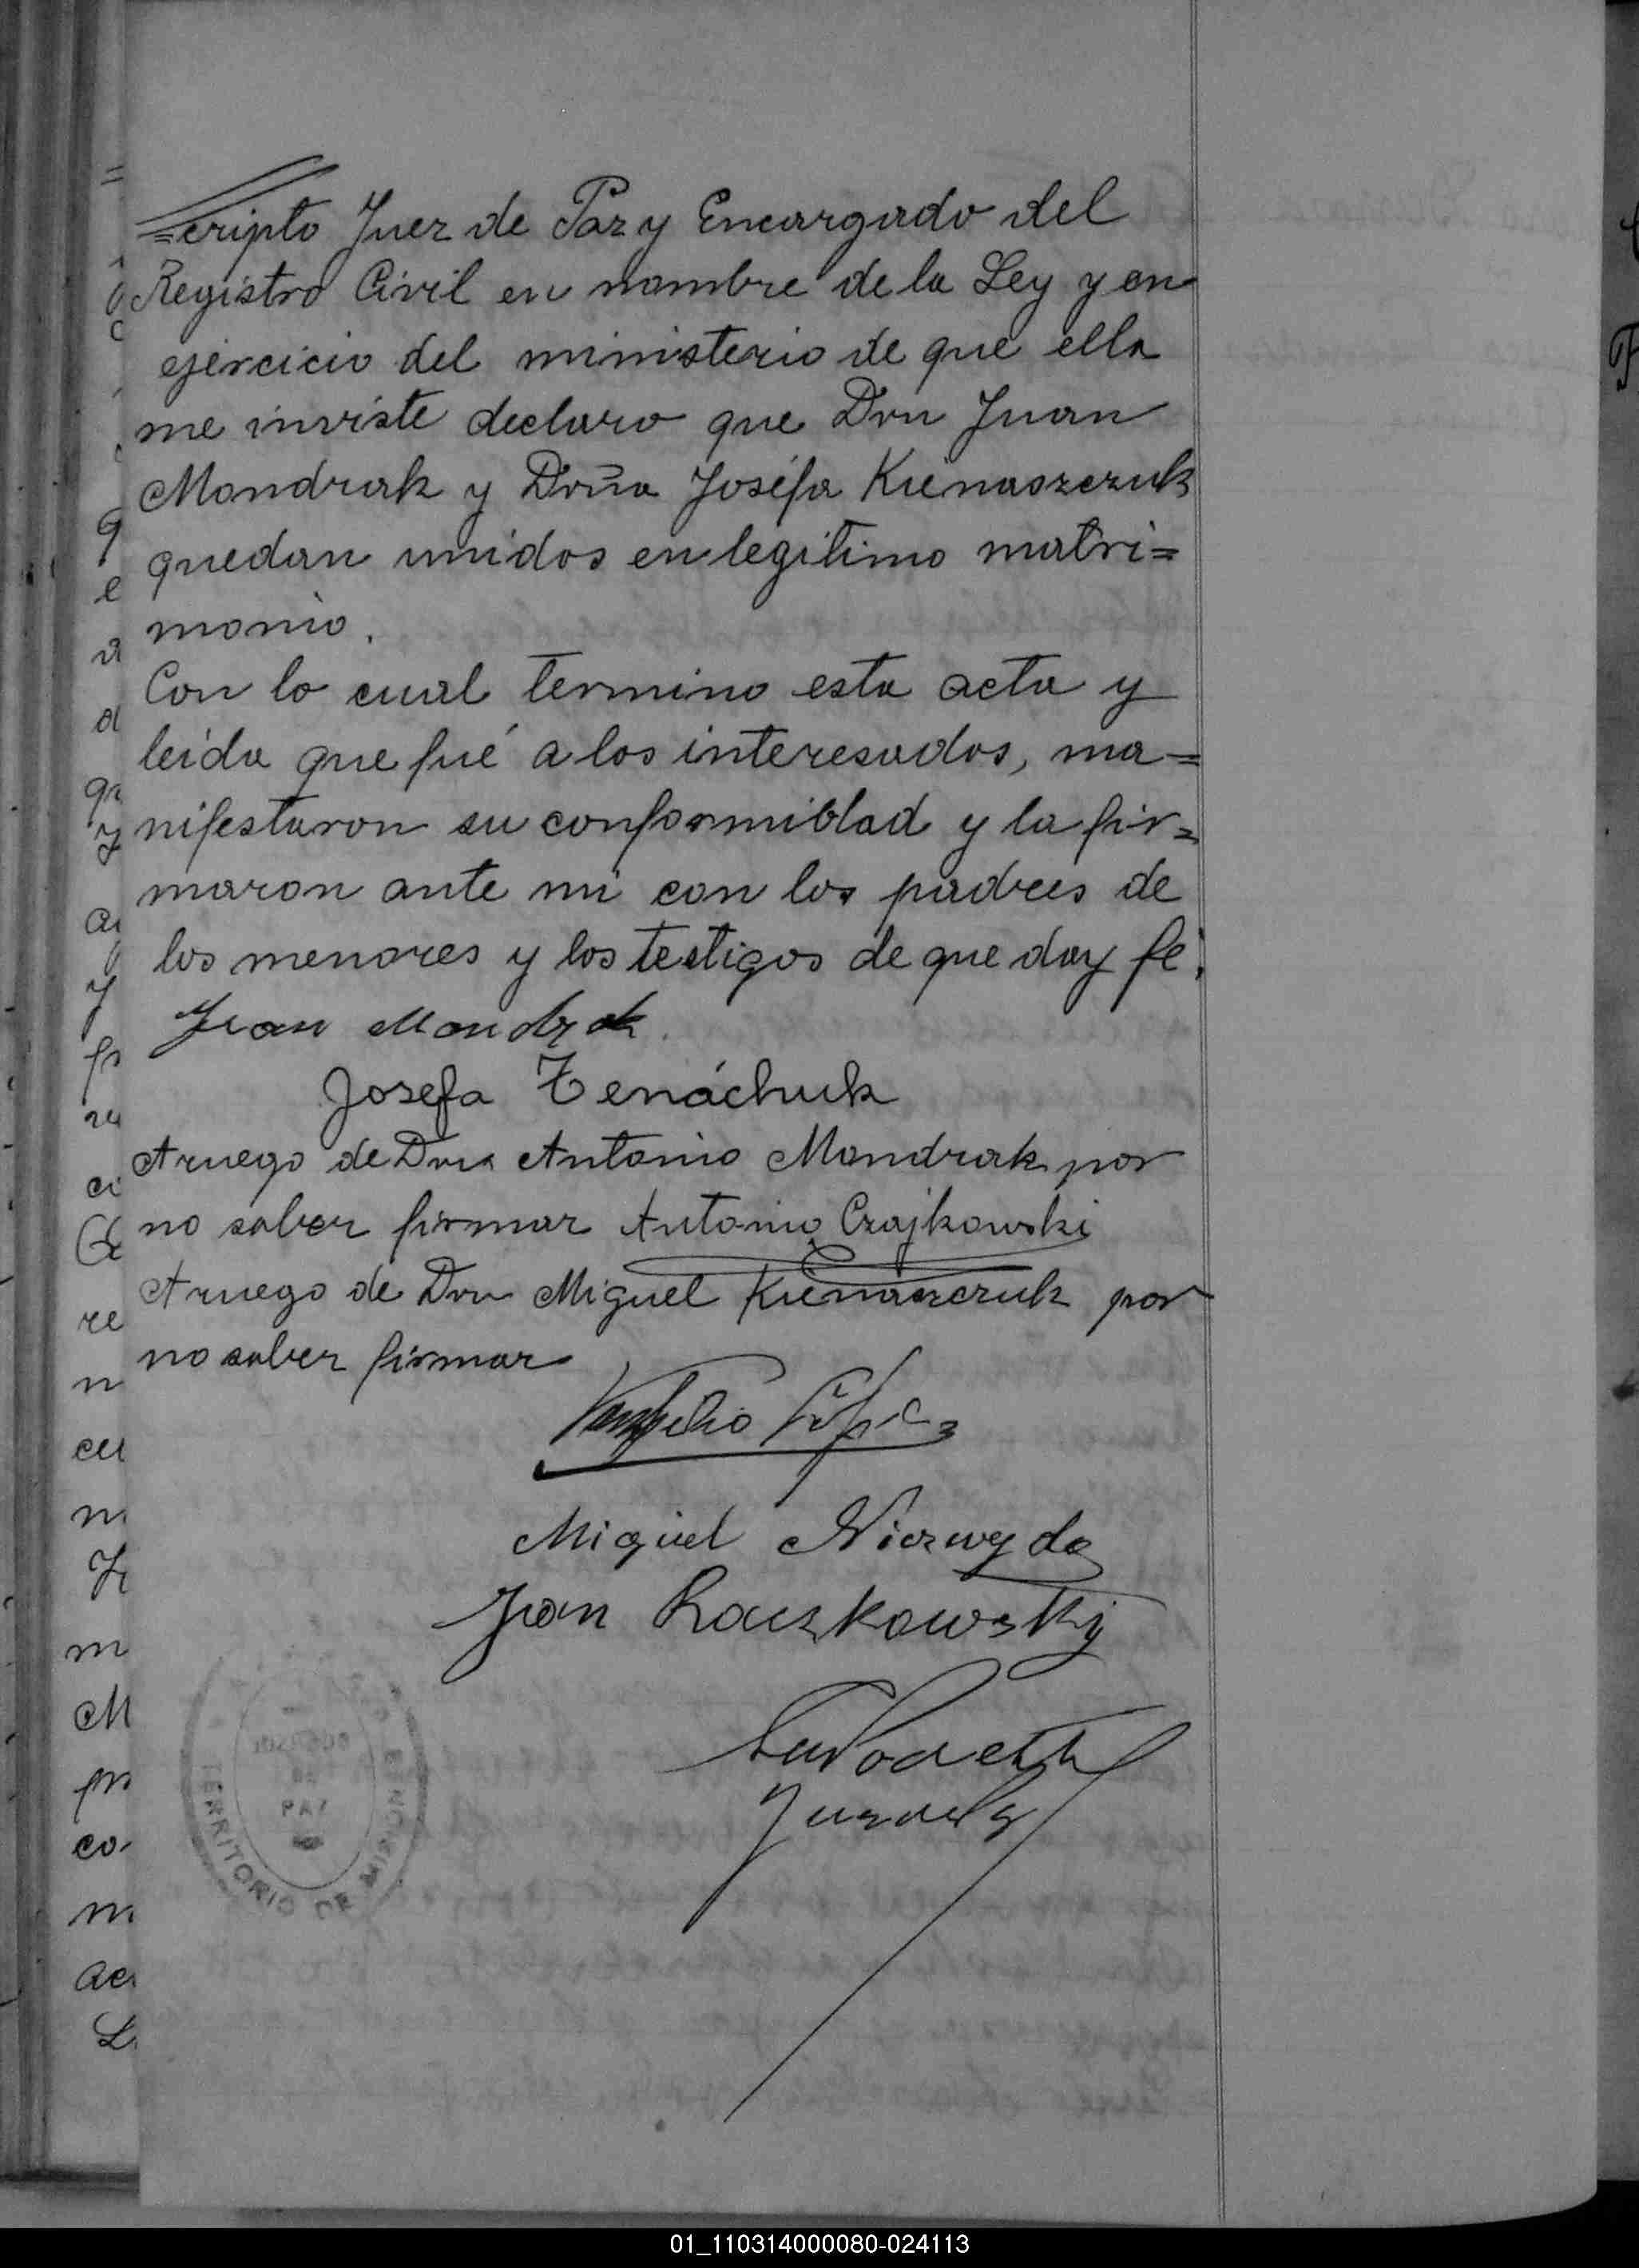 =cripto Juez de Paz y Encargado del
Registro Civil en nombre de la Ley y en
ejercicio del ministerio de que ella
me inviste declaro que Don Juan
Mondrak y Doña Josefa Kienaszczuk
quedan unidos en legitimo matri=
monio.
Con lo cual termino esta acta y
leida que fué a los interesados, ma=
nifestaron su conformidad y la fir=
maron ante mi con los padres de
los menores y los testigos de que doy fe.
Juan Mondrak
Josefa Tenáchuk
A ruego de Don Antonio Mondrak por
no saber firmar Antonio Czajkowski
A ruego de Don Miguel Kienaszczuk por
no saber firmar
Miguel
Juan Raczkowskij
PAZ
TERRITORIO DE MISIONES
01_110314000080-024113